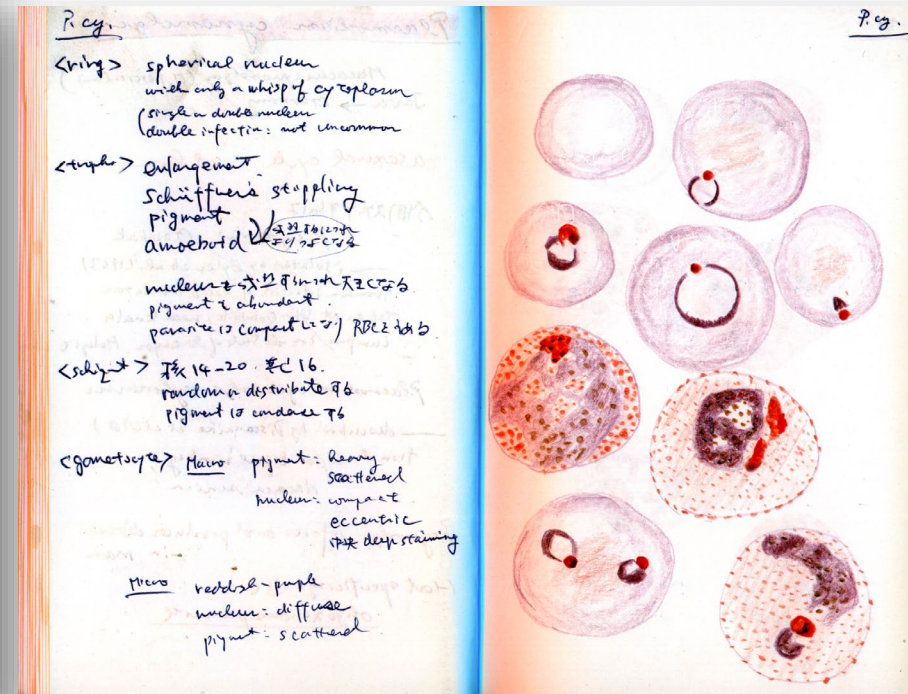 P. cy.
<ring> spherical nucleus
with only a whisp of cytoplasm
(single or double nucleus
double infection: not uncommon
<tropho> enlargement
Schüffner's stippling
pigment
amoeboid
nucleusも成熟するにつれ大きくなる.
pigment も abundant
parasite は compact になり RBCを
<schizont> 核 14-20. 16.
randomに distributeする
pigment は condenseする
<gametocyte> Macro pigment: heavy
scattered
nucleus: compact
eccentric
中央 deep staining
Micro reddish-purple
nucleus: diffuse
pigment: scattered
P. cy.